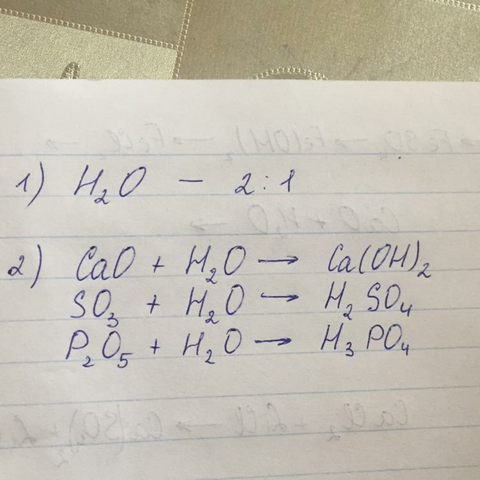 1) H₂O — 2:1
2) CaO + H₂O → Ca(OH)₂
SO₃ + H₂O → H₂SO₄
P₂O₅ + H₂O → H₃PO₄